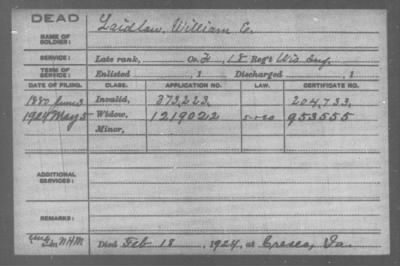 DEAD
NAME OF SOLDIER: Laidlaw, William E.
SERVICE: Late rank, Co. F, 18 Reg't Wis Inf.
TERM OF SERVICE: Enlisted , 1 Discharged , 1
DATE OF FILING. CLASS. APPLICATION NO. LAW. CERTIFICATE NO.
1880 June 3 Invalid, 373,223. 204,733.
1924 May 5 Widow, 1219022 953555
Minor,
ADDITIONAL SERVICES:
REMARKS:
Died Feb 18, 1924, at Cresco, Ia.